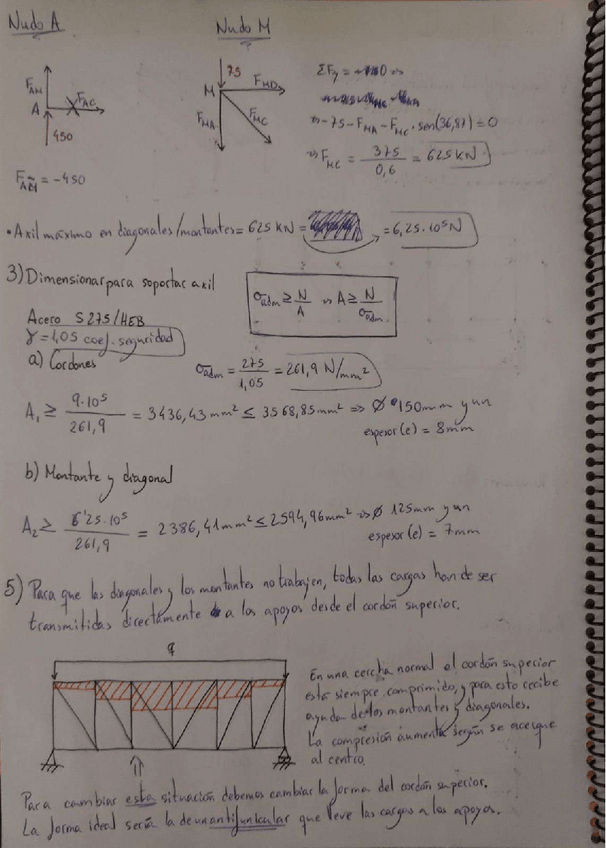 Nudo A
Nudo M
F_AM
A F_AC
450
F_AM = -450
75
M F_MD
F_MA F_MC
ΣFy = 0 =>
=> -75 - F_MA - F_MC · sen(36,87) = 0
=> F_MC = 375 / 0,6 = 625 kN
• Axil máximo en diagonales/montantes = 625 kN = = 6,25·10⁵ N
3) Dimensionar para soportar axil
σadm ≥ N/A => A ≥ N/σadm
Acero S275/HEB
γ = 1,05 coef. seguridad
a) Cordones
σadm = 275/1,05 = 261,9 N/mm²
A₁ ≥ 9·10⁵ / 261,9 = 3436,43 mm² ≤ 3568,85 mm² => Ø 150 mm y un
espesor (e) = 8mm
b) Montante y diagonal
A₂ ≥ 6'25·10⁵ / 261,9 = 2386,41 mm² ≤ 2594,96 mm² => Ø 125mm y un
espesor (e) = 7mm
5) Para que las diagonales y los montantes no trabajen, todas las cargas han de ser
transmitidas directamente a los apoyos desde el cordón superior.
q
En una cercha normal el cordón superior
está siempre comprimido, y para esto recibe
ayuda de los montantes y diagonales.
La compresión aumenta según se acerque
al centro.
Para cambiar esta situación debemos cambiar la forma del cordón superior.
La forma ideal sería la de un antifunicular que lleve las cargas a los apoyos.